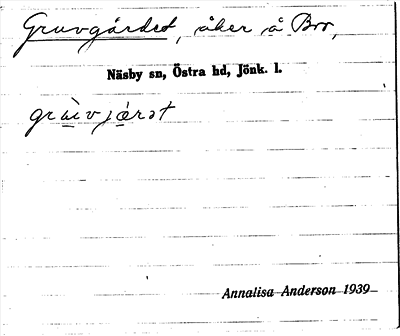 Gruvgärdet, åker å Bro,
Näsby sn, Östra hd, Jönk. l.
Annalisa Anderson 1939